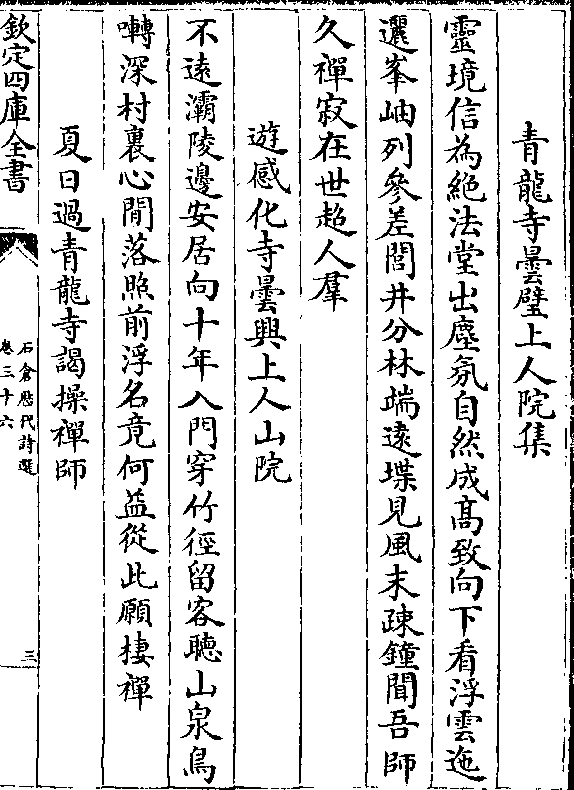 青龍寺曇壁上人院集
靈境信為絶法堂出塵氛自然成髙致向下看浮雲迤
邐峯岫列參差閭井分林端逺堞見風末疎鐘聞吾師
久禪寂在世超人羣
遊感化寺曇興上人山院
不逺灞陵邊安居向十年入門穿竹徑留客聽山泉鳥
囀深村裏心閒落照前浮名竟何益從此願棲禪
夏日過青龍寺謁操禪師
欽定四庫全書
石倉歴代詩選
卷三十六
三